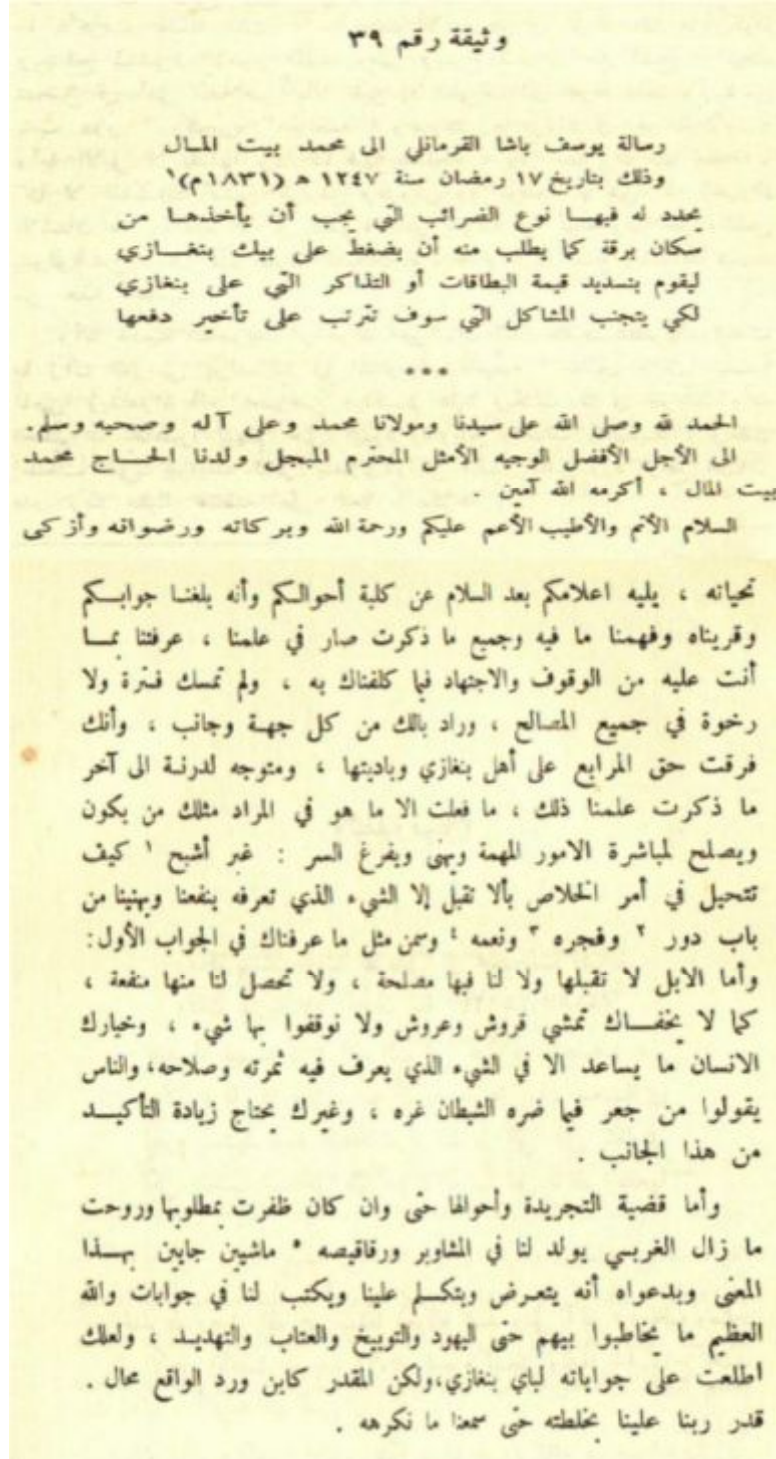 وثيقة رقم ٣٩
رسالة يوسف باشا القرمانلي الى محمد بيت المال
وذلك بتاريخ ١٧ رمضان سنة ١٢٤٧ ه (١٨٣١م)١
يحدد له فيها نوع الضرائب التي يجب أن يأخذها من
سكان برقة كما يطلب منه أن يضغط على بيك بنغازي
ليقوم بتسديد قيمة البطاقات أو التذاكر التي على بنغازي
لكي يتجنب المشاكل التي سوف تترتب على تأخير دفعها
***
الحمد لله وصلى الله على سيدنا ومولانا محمد وعلى آله وصحبه وسلم.
الى الأجل الأفضل الوجيه الأمثل المحترم المبجل ولدنا الحاج محمد
بيت المال ، أكرمه الله آمين .
السلام الأتم والأطيب الأعم عليكم ورحمة الله وبركاته ورضوانه وأزكى
تحياته ، يليه اعلامكم بعد السلام عن كلية أحوالكم وأنه بلغنا جوابكم
وقريناه وفهمنا ما فيه وجميع ما ذكرت صار في علمنا ، عرفتنا بما
أنت عليه من الوقوف والاجتهاد فيما كلفناك به ، ولم تمسك فترة ولا
رخوة في جميع المصالح ، وراد بالك من كل جهة وجانب ، وأنك
فرقت حق المرابع على أهل بنغازي وباديتها ، ومتوجه لدرنة الى آخر
ما ذكرت علمنا ذلك ، ما فعلت الا ما هو في المراد مثلك من يكون
ويصلح لمباشرة الامور المهمة ويهنى ويفرغ السر : غير أشبح ١ كيف
تتحيل في أمر الخلاص بألا تقبل إلا الشيء الذي تعرفه ينفعنا ويهنينا من
باب دور ٢ وفجره ٣ ونعمه ٤ وسمن مثل ما عرفناك في الجواب الأول:
وأما الابل لا تقبلها ولا لنا فيها مصلحة ، ولا تحصل لنا منها منفعة ،
كما لا يخفاك تمشي قروش وعروش ولا نوقفوا بها شيء ، وخيارك
الانسان ما يساعد الا في الشيء الذي يعرف فيه ثمرته وصلاحه، والناس
يقولوا من جعر فيما ضره الشيطان غره ، وغيرك يحتاج زيادة التأكيد
من هذا الجانب .
وأما قضية التجريدة وأحوالها حتى وان كان ظفرت بمطلوبها وروحت
ما زال الغربي يولد لنا في المشاوير ورقاقيصه ٥ ماشيين جايين بهذا
المعنى وبدعواه أنه يتعرض ويتكلم علينا ويكتب لنا في جوابات والله
العظيم ما يخاطبوا بيهم حتى اليهود والتوبيخ والعتاب والتهديد ، ولعلك
اطلعت على جواباته لباي بنغازي،ولكن المقدر كاين ورد الواقع محال .
قدر ربنا علينا بخلطته حتى سمعنا ما نكرهه .